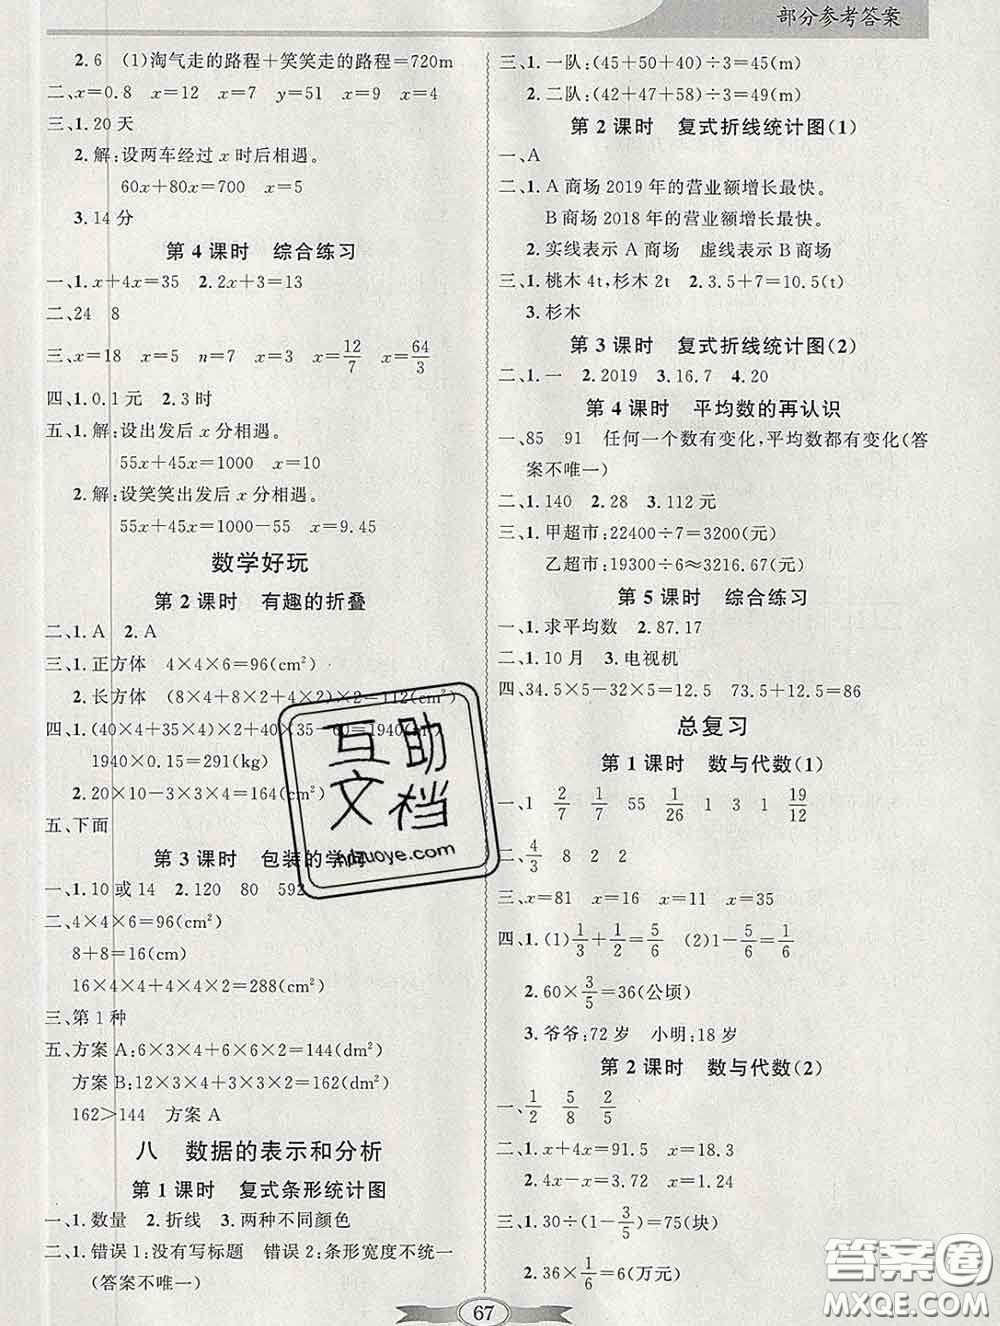 部分参考答案
2.6 (1)淘气走的路程+笑笑走的路程=720m
二、x=0.8 x=12 x=7 y=51 x=9 x=4
三、1.20天
2.解:设两车经过x时后相遇。
60x+80x=700 x=5
3.14分
第4课时 综合练习
一、1.x+4x=35 2.2x+3=13
二、24 8
三、x=18 x=5 n=7 x=12/7 x=64/3
四、1.0.1元 2.3时
五、1.解:设出发后x分相遇。
55x+45x=1000 x=10
2.解:设笑笑出发后x分相遇。
55x+45x=1000-55 x=9.45
数学好玩
第2课时 有趣的折叠
二、1.A 2.A
三、1.正方体 4×4×6=96(cm²)
2.长方体 (8×4+8×2+4×2)×2=112(cm²)
四、1.(40×4+35×4)×2+40×35-60=1940(m²)
1940×0.15=291(kg)
2.20×10-3×3×4=164(cm²)
五、下面
第3课时 包装的学问
一、1.10或14 2.120 80 592
二、4×4×6=96(cm²)
8+8=16(cm)
16×4×4+4×4×2=288(cm²)
三、第1种
五、方案A:6×3×4+6×6×2=144(dm²)
方案B:12×3×4+3×3×2=162(dm²)
162>144 方案A
八 数据的表示和分析
第1课时 复式条形统计图
一、1.数量 2.折线 3.两种不同颜色
二、1.错误1:没有写标题 错误2:条形宽度不统一
(答案不唯一)
三、1.一队:(45+50+40)÷3=45(m)
2.二队:(42+47+58)÷3=49(m)
第2课时 复式折线统计图(1)
一、A
二、1.A商场2019年的营业额增长最快。
B商场2018年的营业额增长最快。
2.实线表示A商场 虚线表示B商场
三、1.桃木4t,杉木2t 2.3.5+7=10.5(t)
3.杉木
第3课时 复式折线统计图(2)
二、1.一 2.2019 3.16.7 4.20
第4课时 平均数的再认识
一、85 91 任何一个数有变化,平均数都有变化(答
案不唯一)
二、1.140 2.28 3.112元
三、1.甲超市:22400÷7=3200(元)
乙超市:19300÷6≈3216.67(元)
第5课时 综合练习
一、1.求平均数 2.87.17
二、1.10月 3.电视机
四、34.5×5-32×5=12.5 73.5+12.5=86
总复习
第1课时 数与代数(1)
一、1 2/7 1/7 55 1/26 1 3 1 19/12
二、4/3 8 2 2
三、x=81 x=6 x=7 x=4
四、1.(1)1/3+1/2=5/6 (2)1-5/6=1/6
2.60×3/5=36(公顷)
3.爷爷:72岁 小明:18岁
第2课时 数与代数(2)
一、1/2 5/8 2/5
二、1.x+4x=91.5 x=18.3
2.4x-x=3.72 x=1.24
三、1.30÷(1-3/5)=75(块)
2.36×1/6=6(万元)
67
互助文档
答案圈
MXQE.COM